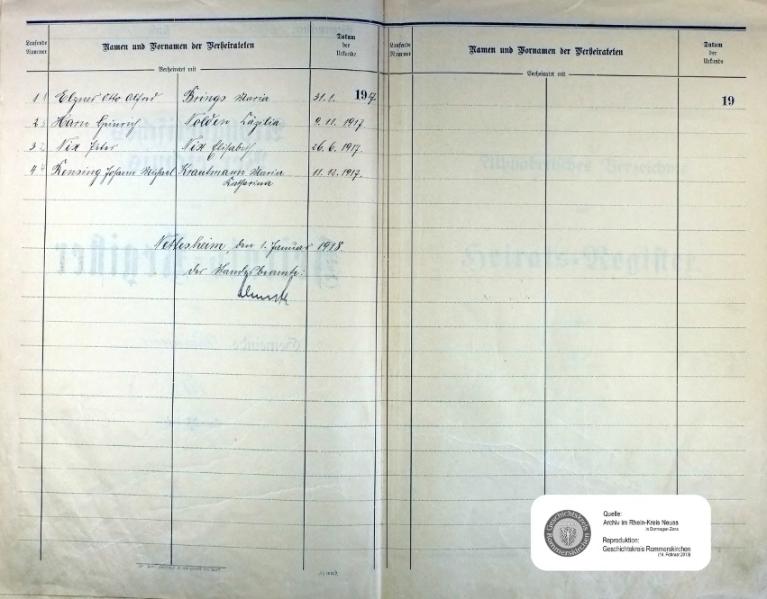 Laufende
Nummer
Namen und Vornamen der Verheirateten
Verheiratet mit
Datum
der
Urkunde
1 Elzner Otto Alfred Brings Maria 31. 1. 1917.
2 Harn Heinrich Nolden Cäzilia 9. 11. 1917.
3 Nix Peter Nix Elisabeth 26. 6. 1917.
4 Rensing Johann Michael Krautmann Maria 11. 12. 1917.
Katharina
Nettesheim, den 1. Januar 1918
der Standesbeamte:
Laufende
Nummer
Namen und Vornamen der Verheirateten
Verheiratet mit
Datum
der
Urkunde
19
Heirats-Register
Geschichtskreis
Rommerskirchen
Quelle:
Archiv im Rhein-Kreis Neuss
in Dormagen-Zons
Reproduktion:
Geschichtskreis Rommerskirchen